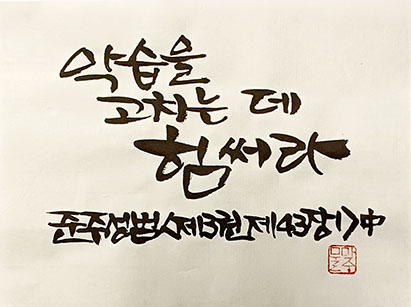 악습을
고치는 데
힘써라
준주성범<제3권 제43장>中